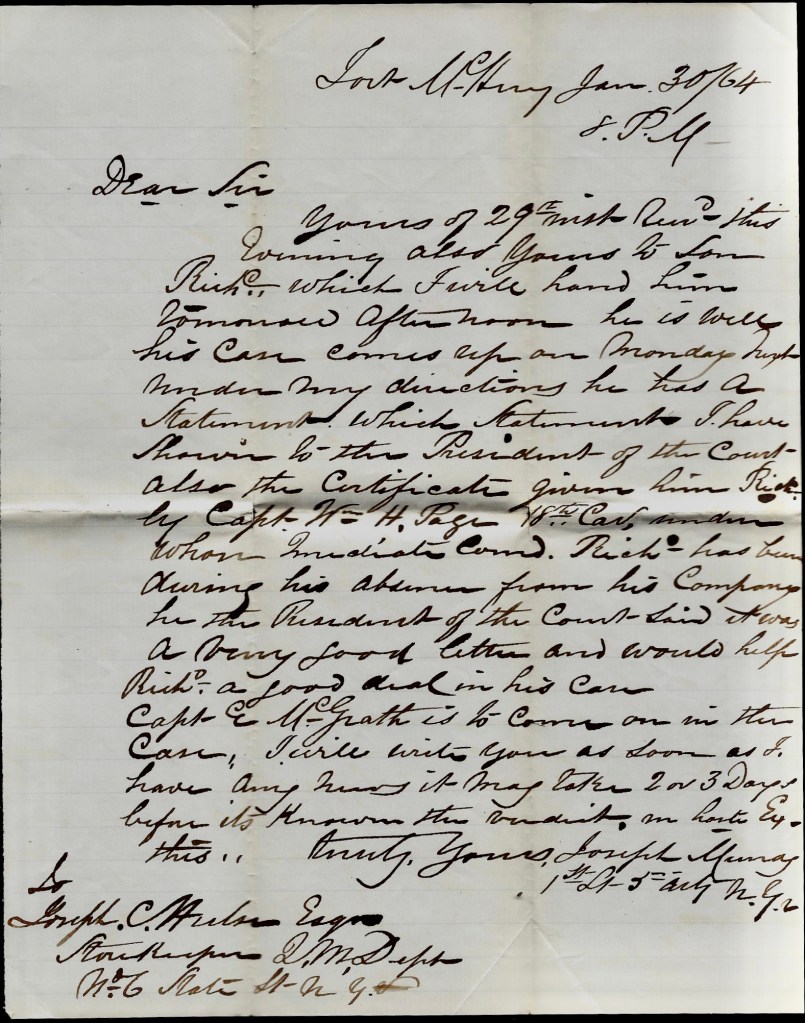 Fort McHenry Jan. 30/64
8. P. M
Dear Sir
Yours of 29th inst Recvd this
Evening also Yours to Son
Richd., which I will hand him
tomorrow Afternoon he is well
his Case comes up on Monday next
under my directions he has a
Statement. which Statement I have
Shown to the President of the Court
also the Certificate given him Richd.
by Capt. Wm H. Page 18th Cav, under
whose Imediate Comd. Richd has been
during his absence from his Company
he the President of the Court Said it was
a very good letter and would help
Richd. a good deal in his Case
Capt E McGrath is to Come on in the
Case, I will write you as Soon as I
have any News it may take 2 or 3 Days
before its Known the verdict, in haste Ex-
this.. truly. Yours, Joseph Murray
1st Lt 5th Arty N. Y. v
To
Joseph. C. Hulse Esqr
StoreKeeper Q. M. Dept
No 6 State St N Y.